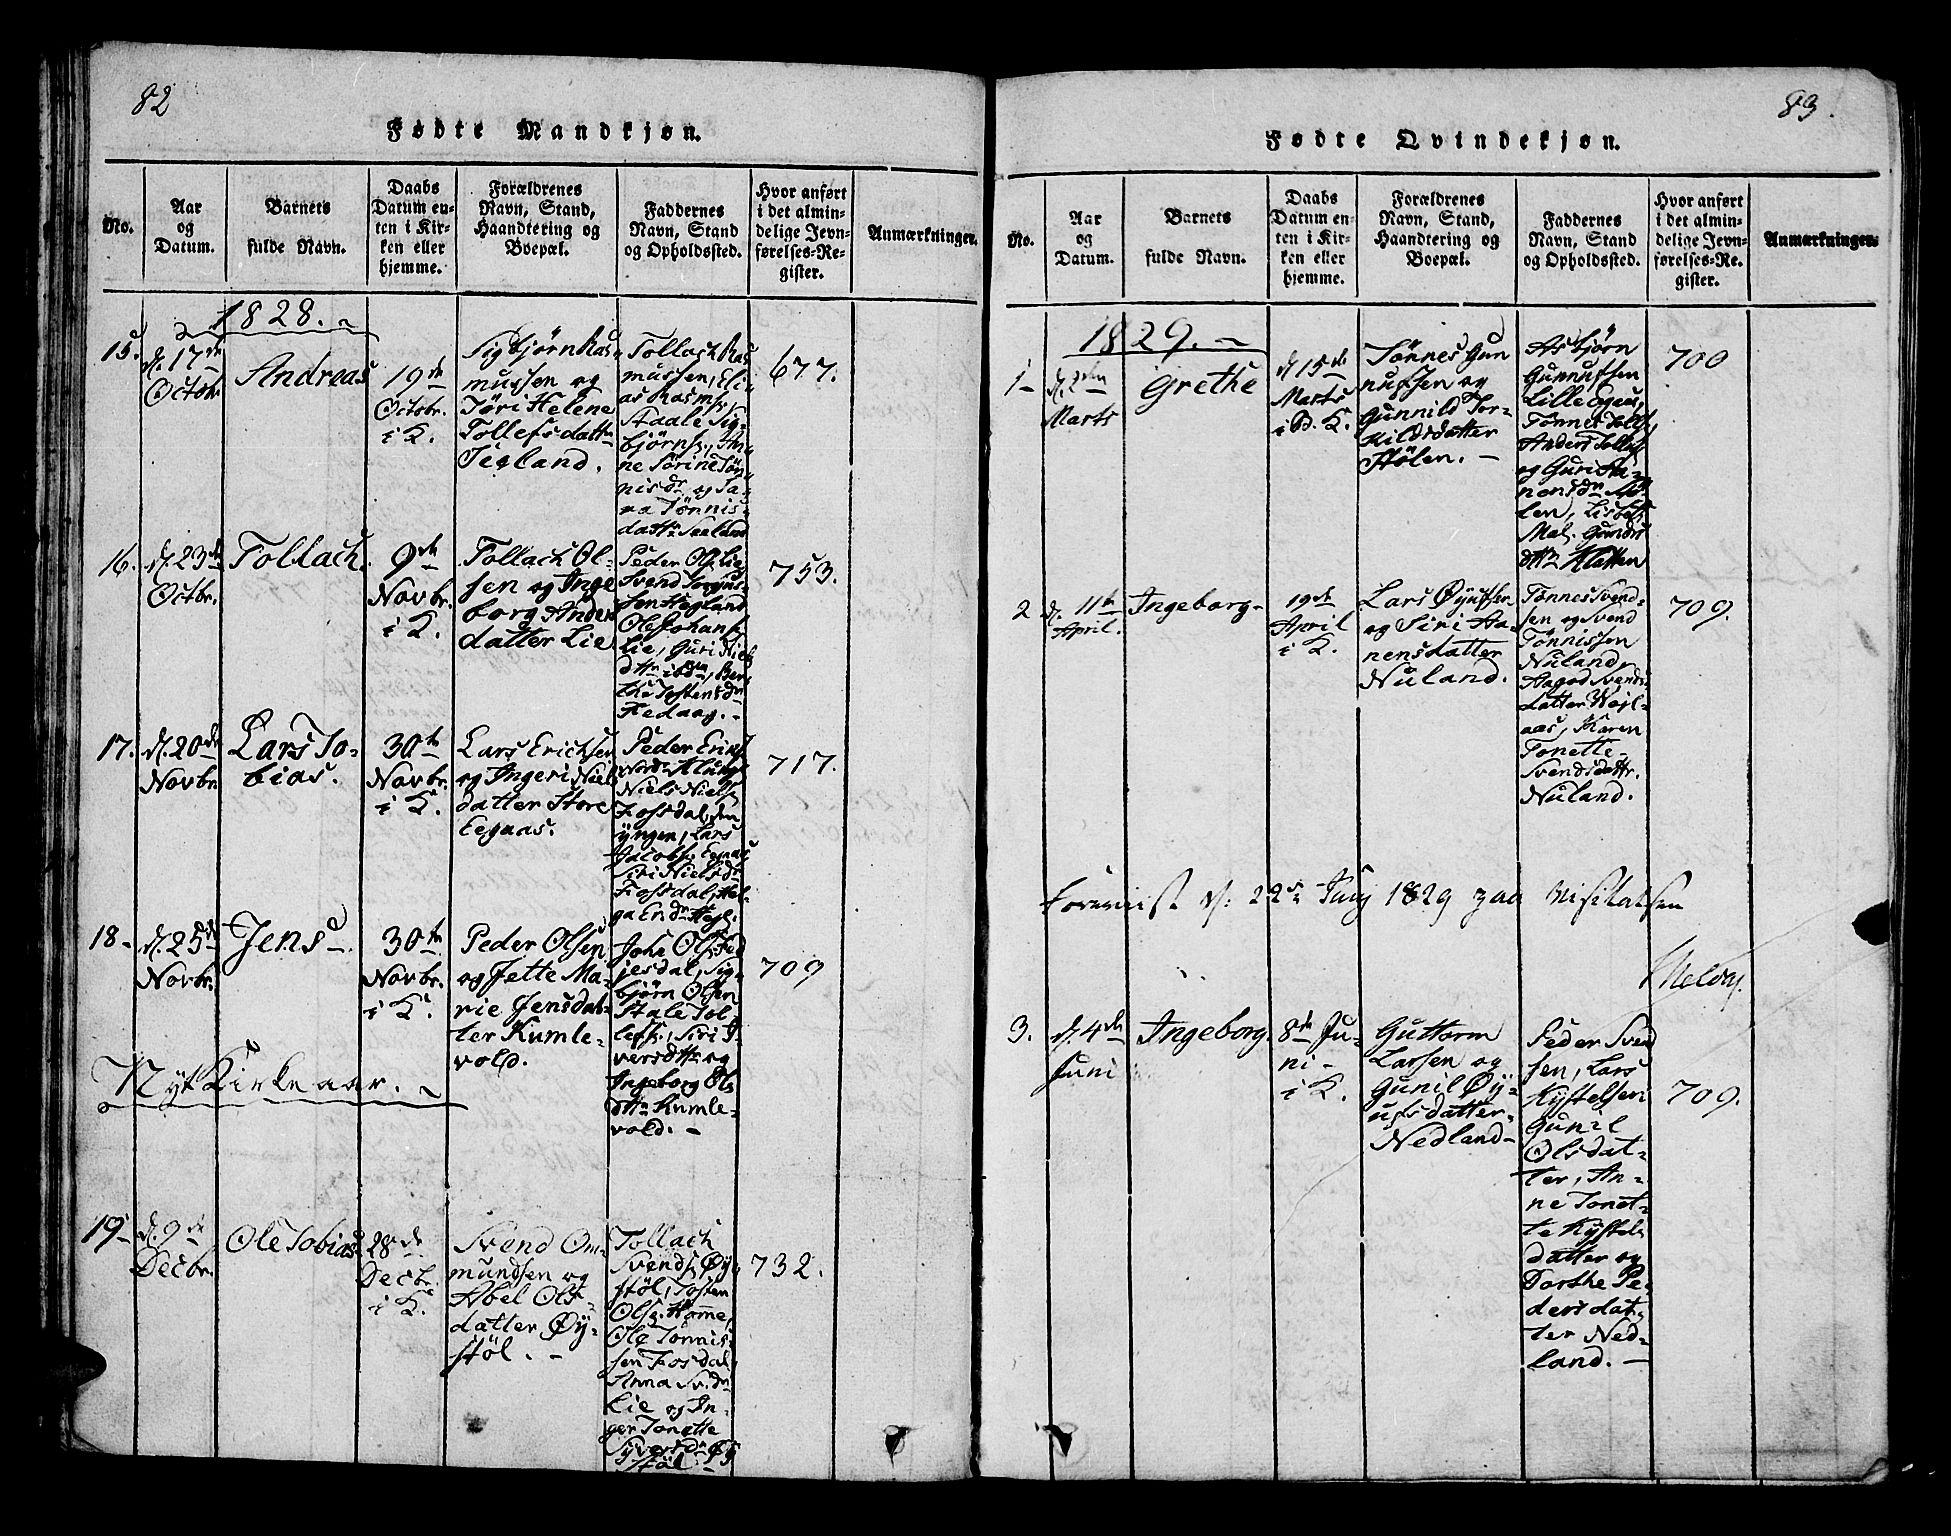 82
Fødte Mandkjøn.
No.
Aar
og
Datum.
Barnets
fulde Navn.
Daabs
Datum en-
ten i Kir-
ken eller
hjemme.
Forældrenes
Navn, Stand,
Haandtering og
Boepæl.
Faddernes
Navn, Stand
og Opholdssted.
Hvor anført
i det almin-
delige Jevn-
førelses-Re-
gister.
Anmærkninger.
1828.
15.
d. 17de
Octobr.
Andreas
19de
Octobr.
i K.
Sigbjørn Ras-
mussen og
Tøri Helene
Tollefsdattr
Tegland.
Tollach Ras
mussen, Eli-
as Rasms,
Staale Sig-
bjørns., An-
ne Sørine Tøn
nisdr og Sa-
ra Tønnis-
dattr Seeland
677.
16.
d. 23de
Octbr.
Tollach.
9de
Novbr.
i K.
Tollach Ol-
sen og Inge
borg Anders
datter Lie
Peder Ols. Lie
Svend Torgus-
sen Hegland
Ole Johans.
Lie, Guri Niels
dttr ibdm, Ber-
the Tostensdr
Fedaag.
753.
17.
d. 20de
Novbr.
Lars To-
bias.
30te
Novbr.
i K.
Lars Erichsen
og Ingeri Niels
datter Store
Eegaas.
Peder Erichs.
Niels Niels.
Fosdal, den
yngen, Lars
Jacobs. Egaas
Siri Nielsdr
Fosdal, Hel-
ga Endr.
717.
18
d. 25de
Novbr.
Jens
30te
Novbr.
i K.
Peder Olsen
og Jette Ma-
rie Jensdat-
ter Kumle-
vold.
Johs Ols. Fed
jesdal, Sig-
bjørn Olsen
Stale Tol-
lefs., Siri I-
versdttr og
Ingeborg Ols
dttr Kumle-
vold.
709
Nyt Kirkeaar.
19
d. 9de
Decbr.
Ole Tobias
28de
Decbr.
i K.
Svend Om-
mundsen og
Abel Ols-
datter Øy-
støl.
Tollach
Svends. Øy-
støl, Tosten
Ols. Homme,
Ole Tønnis-
sen Fosdal
Anna Sv.dr
Lie og In-
ger Tonette
Syversdr Øy
støl
732.
83.
Fødte Qvindekjøn.
No.
Aar
og
Datum.
Barnets
fulde Navn.
Daabs
Datum en-
ten i Kir-
ken eller
hjemme.
Forældrenes
Navn, Stand,
Haandtering og
Boepæl.
Faddernes
Navn, Stand
og Opholdssted.
Hvor anført
i det almin-
delige Jevn-
førelses-Re-
gister.
Anmærkninger.
1829.
1
d. 2den
Marts
Grethe
d 15de
Marts
i B. K.
Tønnes Gun
nufsen og
Gunnild Tor-
kildsdatter
Stølen.
Asbjørn
Gunnufsen
Lille Egen,
Tønnes Tollfs,
Anders Tollfs
og Guri Aa-
nonsdr Stø-
len, Lisbet
Mal. Gunds
dttr Klatten
700
2
d. 11te
April.
Ingeborg
19de
April
i K.
Lars Øyufsen
og Siri Aa-
nensdatter
Nuland.
Tønnes Svend-
sen og Svend
Tønnissen
Nuland,
Aagod Svends-
datter
aas, Karen
Tonette
Svendsdattr.
Nuland.
709.
d: 22de Juny 1829 paa Visitatsen
3.
d. 4de
Juni
Ingeborg.
8de Ju-
ni
i K.
Guttorm
Larsen og
Gunil Øy-
ufsdatter
Nedland
Peder Svend
sen, Lars
Kystelsen
Gunil
Olsdat-
ter, An-
ne Tonet-
te Kystels
datter og
Dorthe Pe-
dersdat-
ter Ned-
land.
709.